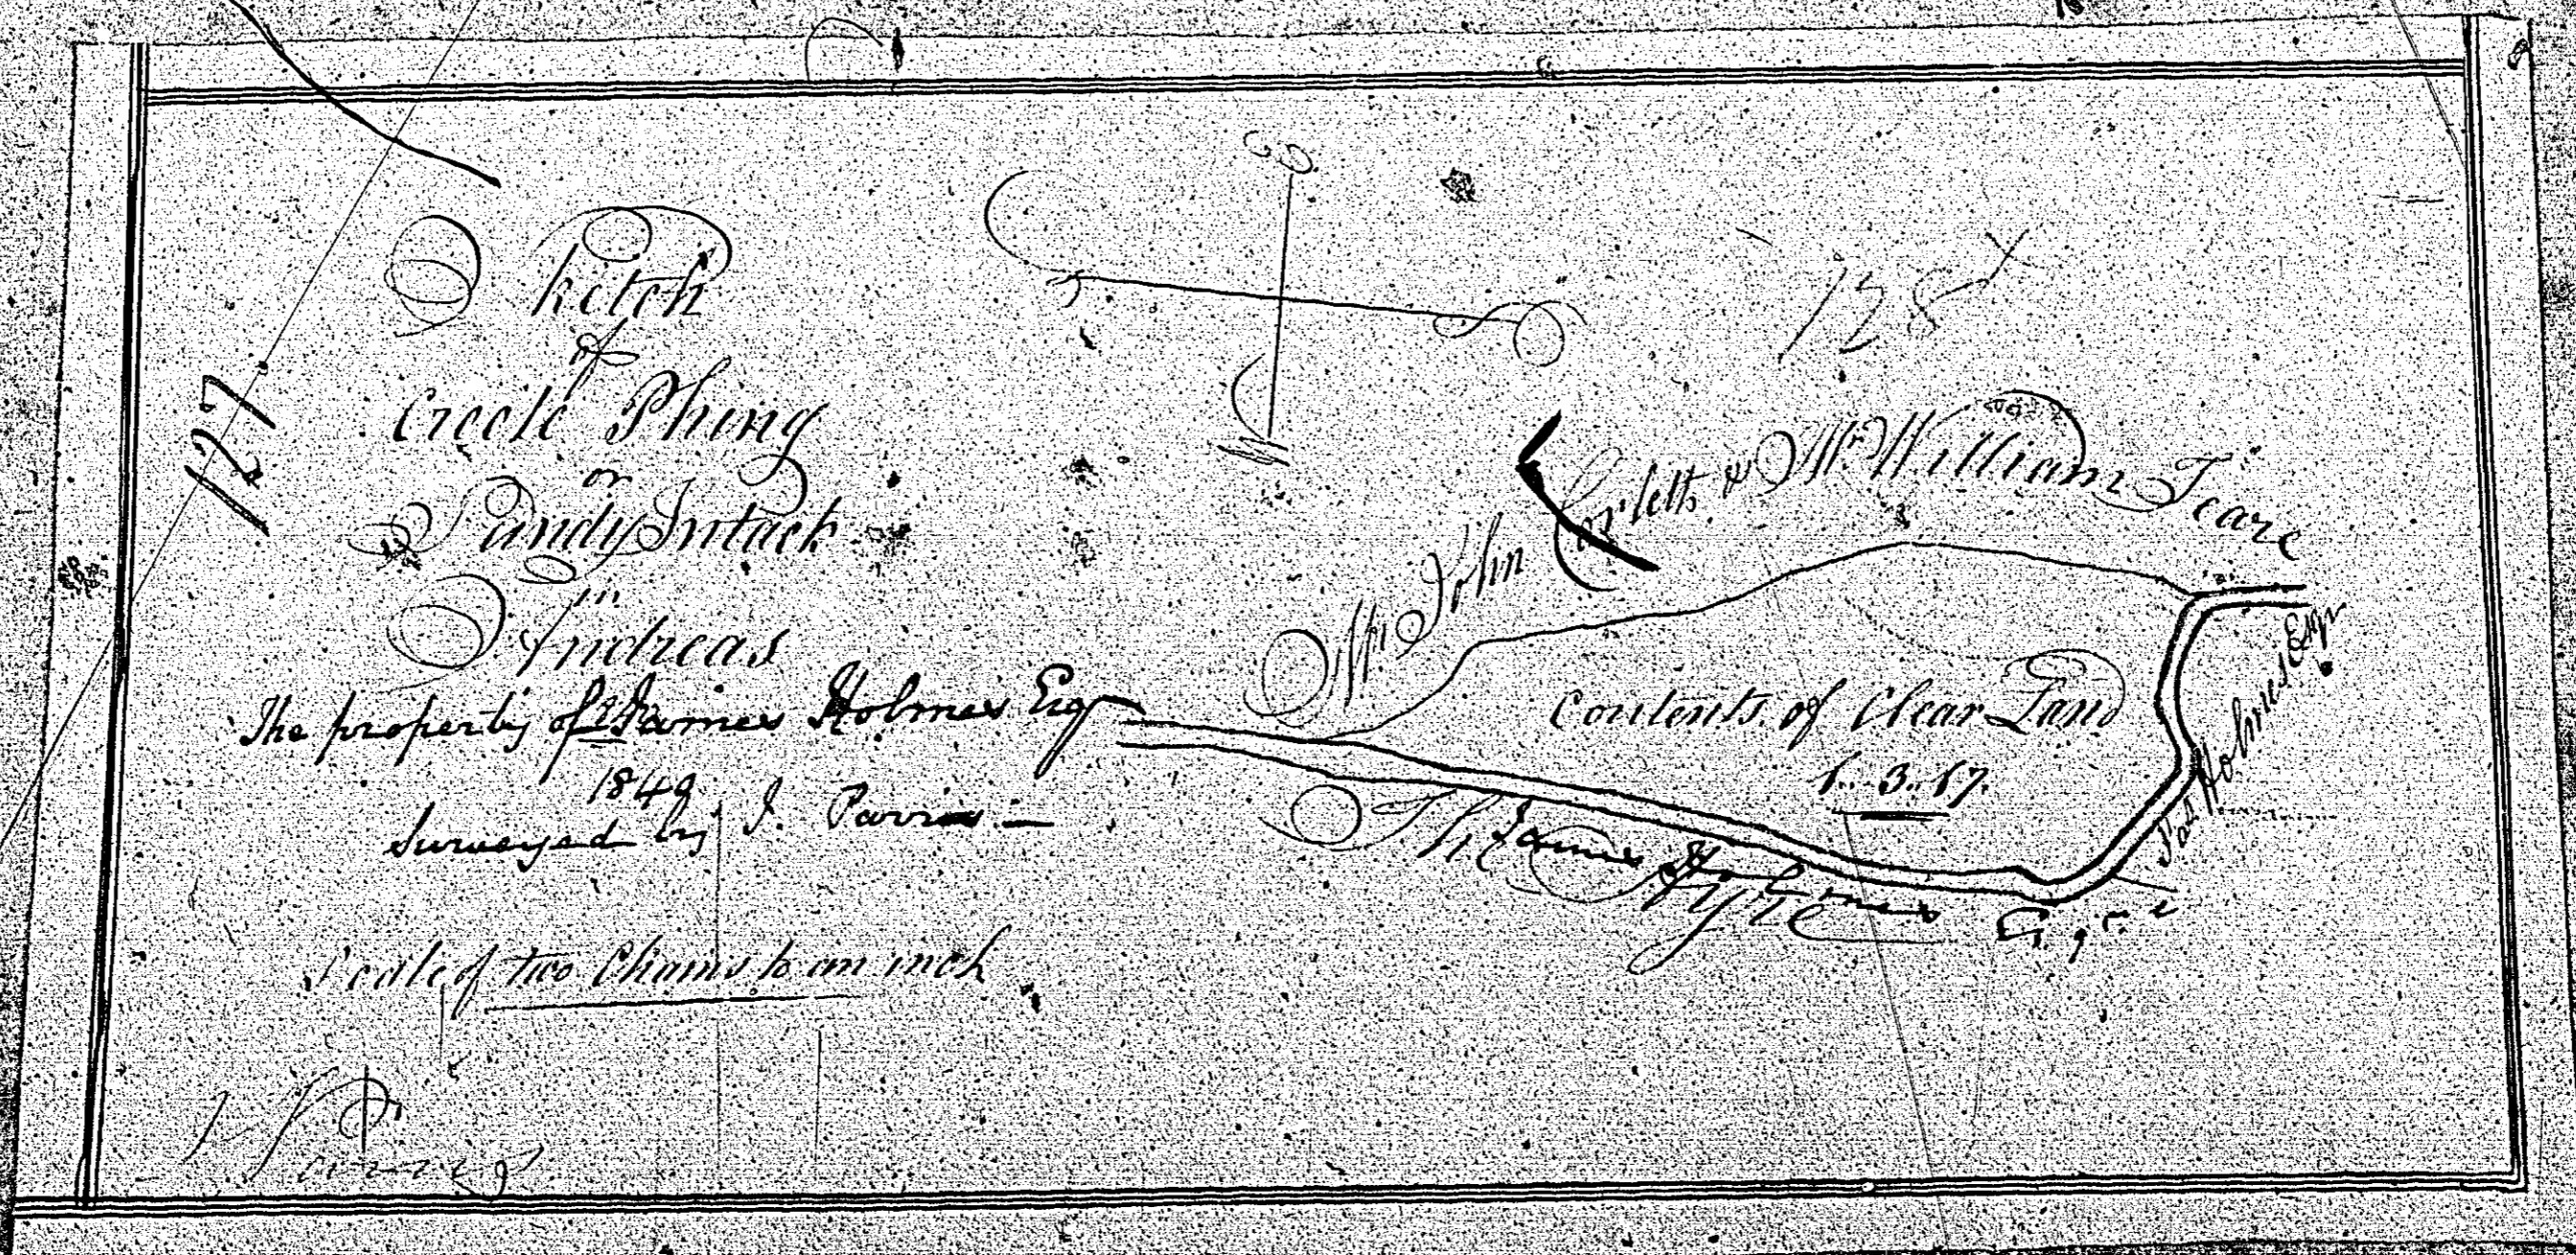 Sketch
of
Phing
or
Sandy Intack
in
Andreas
The property of James Holmes Esq
1849
Surveyed by J.
Scale of two Chains to an inch
127
128
Mr John Corlett & Mr William Teare
Contents of Clear Land
1..3..17.
Holmes Esqr
The
James Holmes Esqre